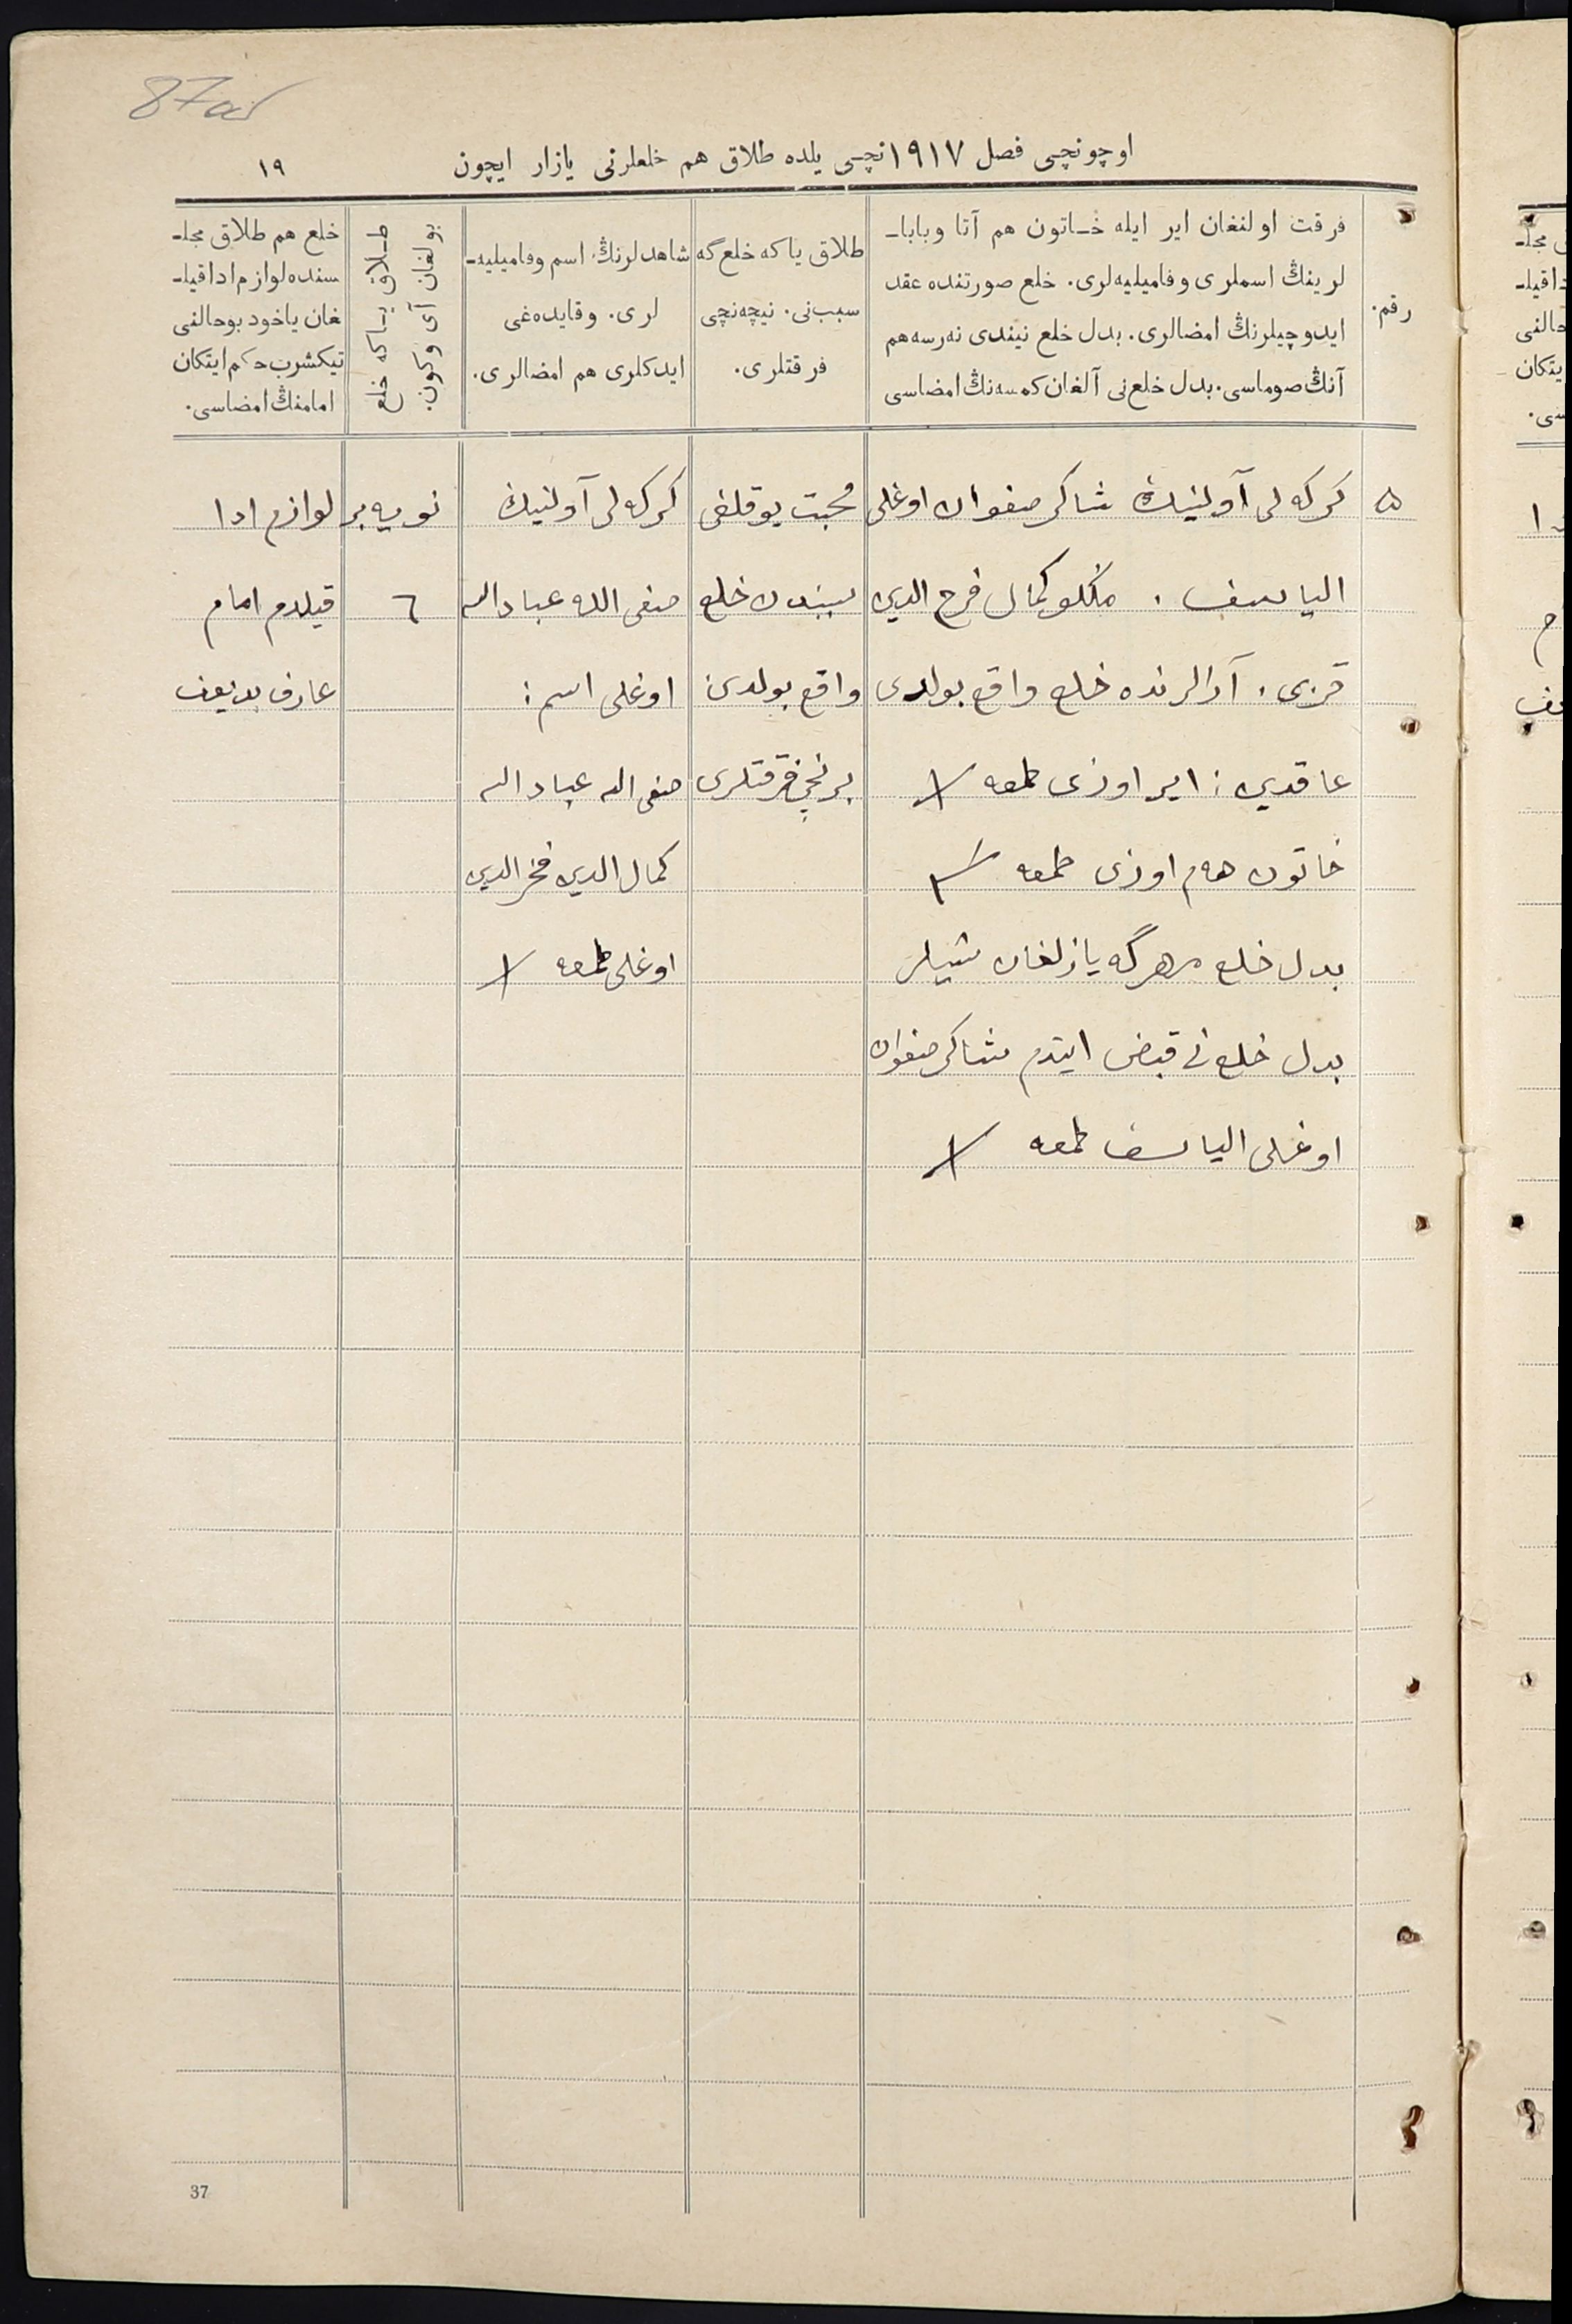 87об
اوچونچی فصل ١٩١٧نچی یلده طلاق هم خلعلرنی یازار ایچون
١٩
رقم.
فرقت اولنغان ایر ایله خـاتون هم آتا وبابا۔
لرینڭ اسملری وفامیلیه‌لری. خلع صورتنده عقد
ایدوچیلرنڭ امضالری. بدل خلع نیندی نه‌رسه هم
آنڭ صوماسی. بدل خلع‌نی آلغان کمسه‌نڭ امضاسی
طلاق یا که خلع گه
سبب‌نی. نیچه‌نچی
فرقتلری.
شاهدلرنڭ اسم وفامیلیه۔
لری. وقایده‌غی
ایدکلری هم امضالری.
طـلاق یـا که خلع
بولغان آی وکون.
خلع هم طلاق مجلـ
سنده لوازم ادا قیلـ
غان یاخود بوحالنی
تیکشرب حکم ایتکان
امامنڭ امضاسی.
٥
کرکه لی آولنیڭ شاکر صفوان اوغلی
الیاسف . منکلو کمال فرح الدین
قزی . آرالرنده خلع واقع بولدی
عاقدین : ایر اوزی طمعه
خاتون هم اوزی طمعه
بدل خلع مهرگه یازلغان شیلر
بدل خلع نی قبض ایتدم شاکر صفوان
اوغلی الیاسف طمعه
محبت یوقلغی
سببندن خلع
واقع بولدی
برنچی فرقتلری
کرکه لی آولنیڭ
صفی الله عباد الله
اوغلی اسم :
صفی الله عباد الله
کمال الدین فخر الدین
اوغلی طمعه
نویه بر
٦
لوازم ادا
قیلدم امام
عارف بدیعف
37